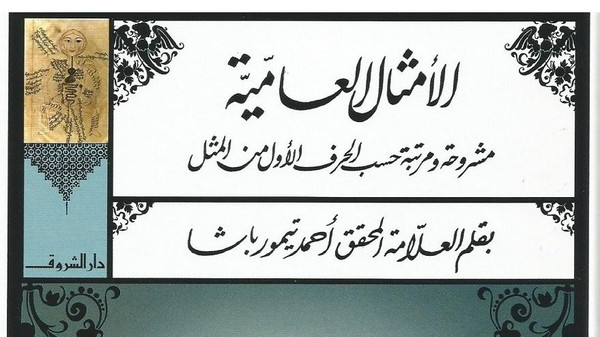 الأمثال العامّيّة
مشروحة ومرتبة حسب الحرف الأول من المثل
بقلم العلّامة المحقق أحمد تيمور باشا
دار الشروق